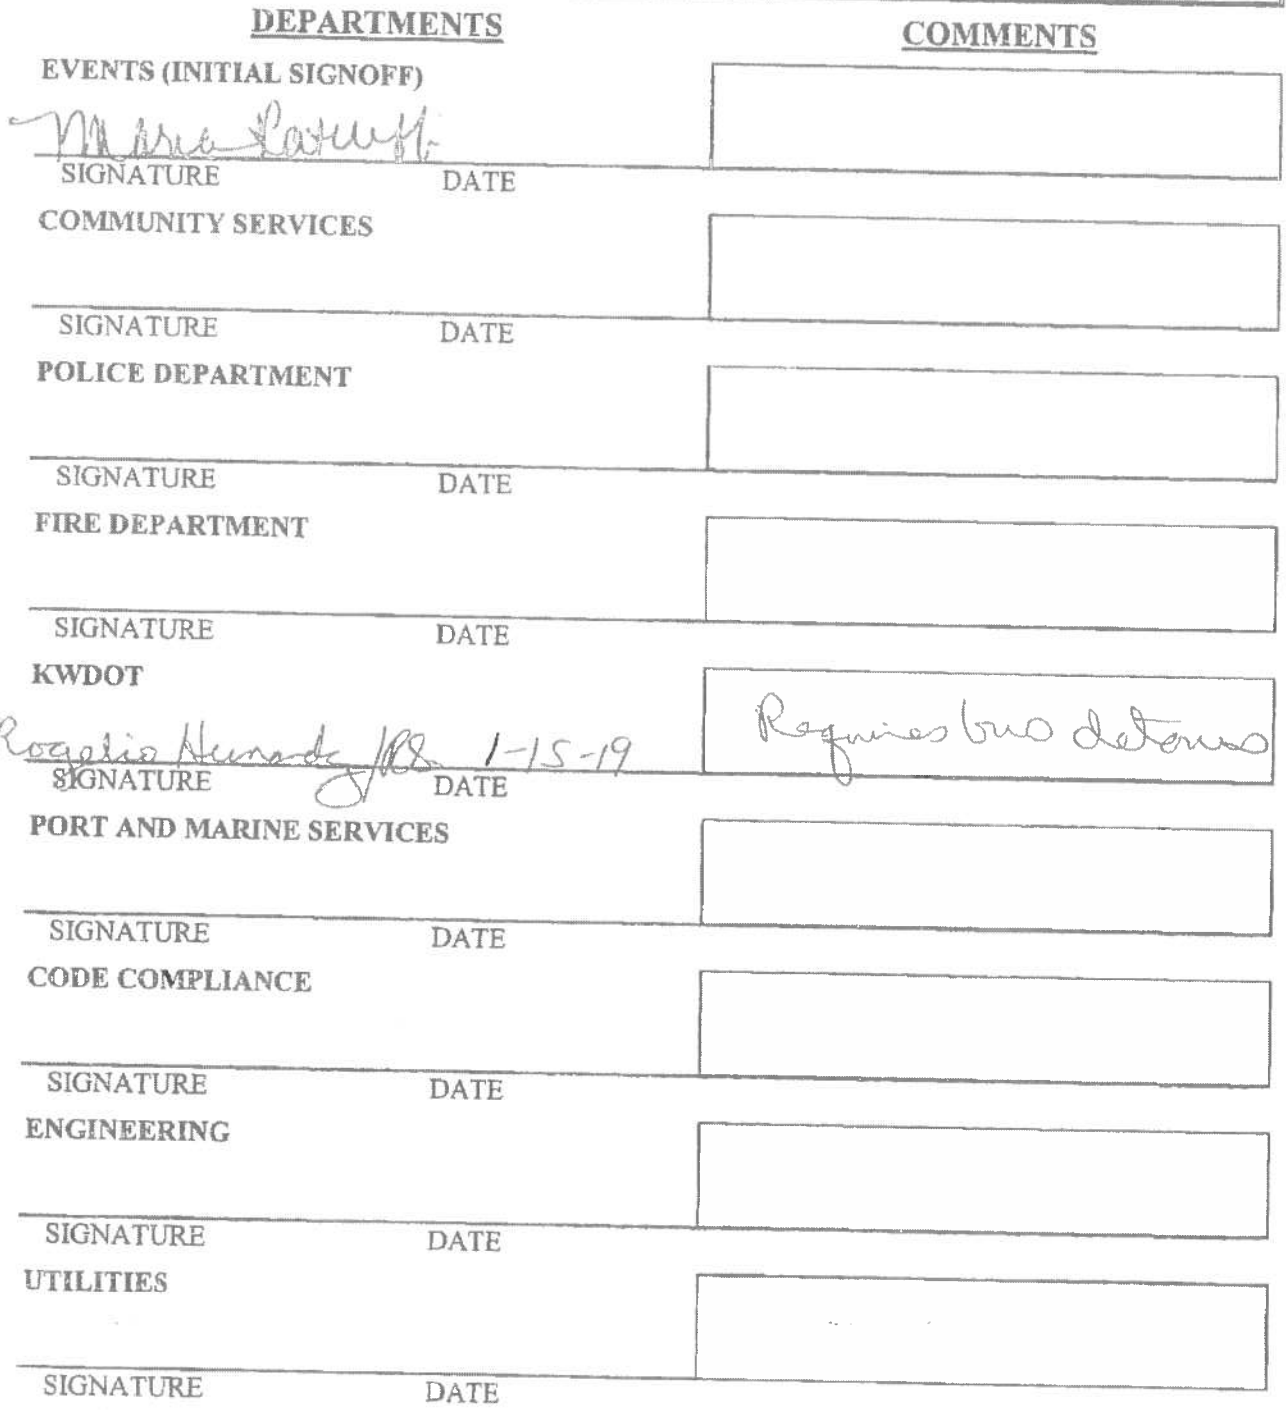 DEPARTMENTS
COMMENTS
EVENTS (INITIAL SIGNOFF)
Maria
SIGNATURE DATE
COMMUNITY SERVICES
SIGNATURE DATE
POLICE DEPARTMENT
SIGNATURE DATE
FIRE DEPARTMENT
SIGNATURE DATE
KWDOT
Requires bus detours
Rogelio 1-15-19
SIGNATURE DATE
PORT AND MARINE SERVICES
SIGNATURE DATE
CODE COMPLIANCE
SIGNATURE DATE
ENGINEERING
SIGNATURE DATE
UTILITIES
SIGNATURE DATE